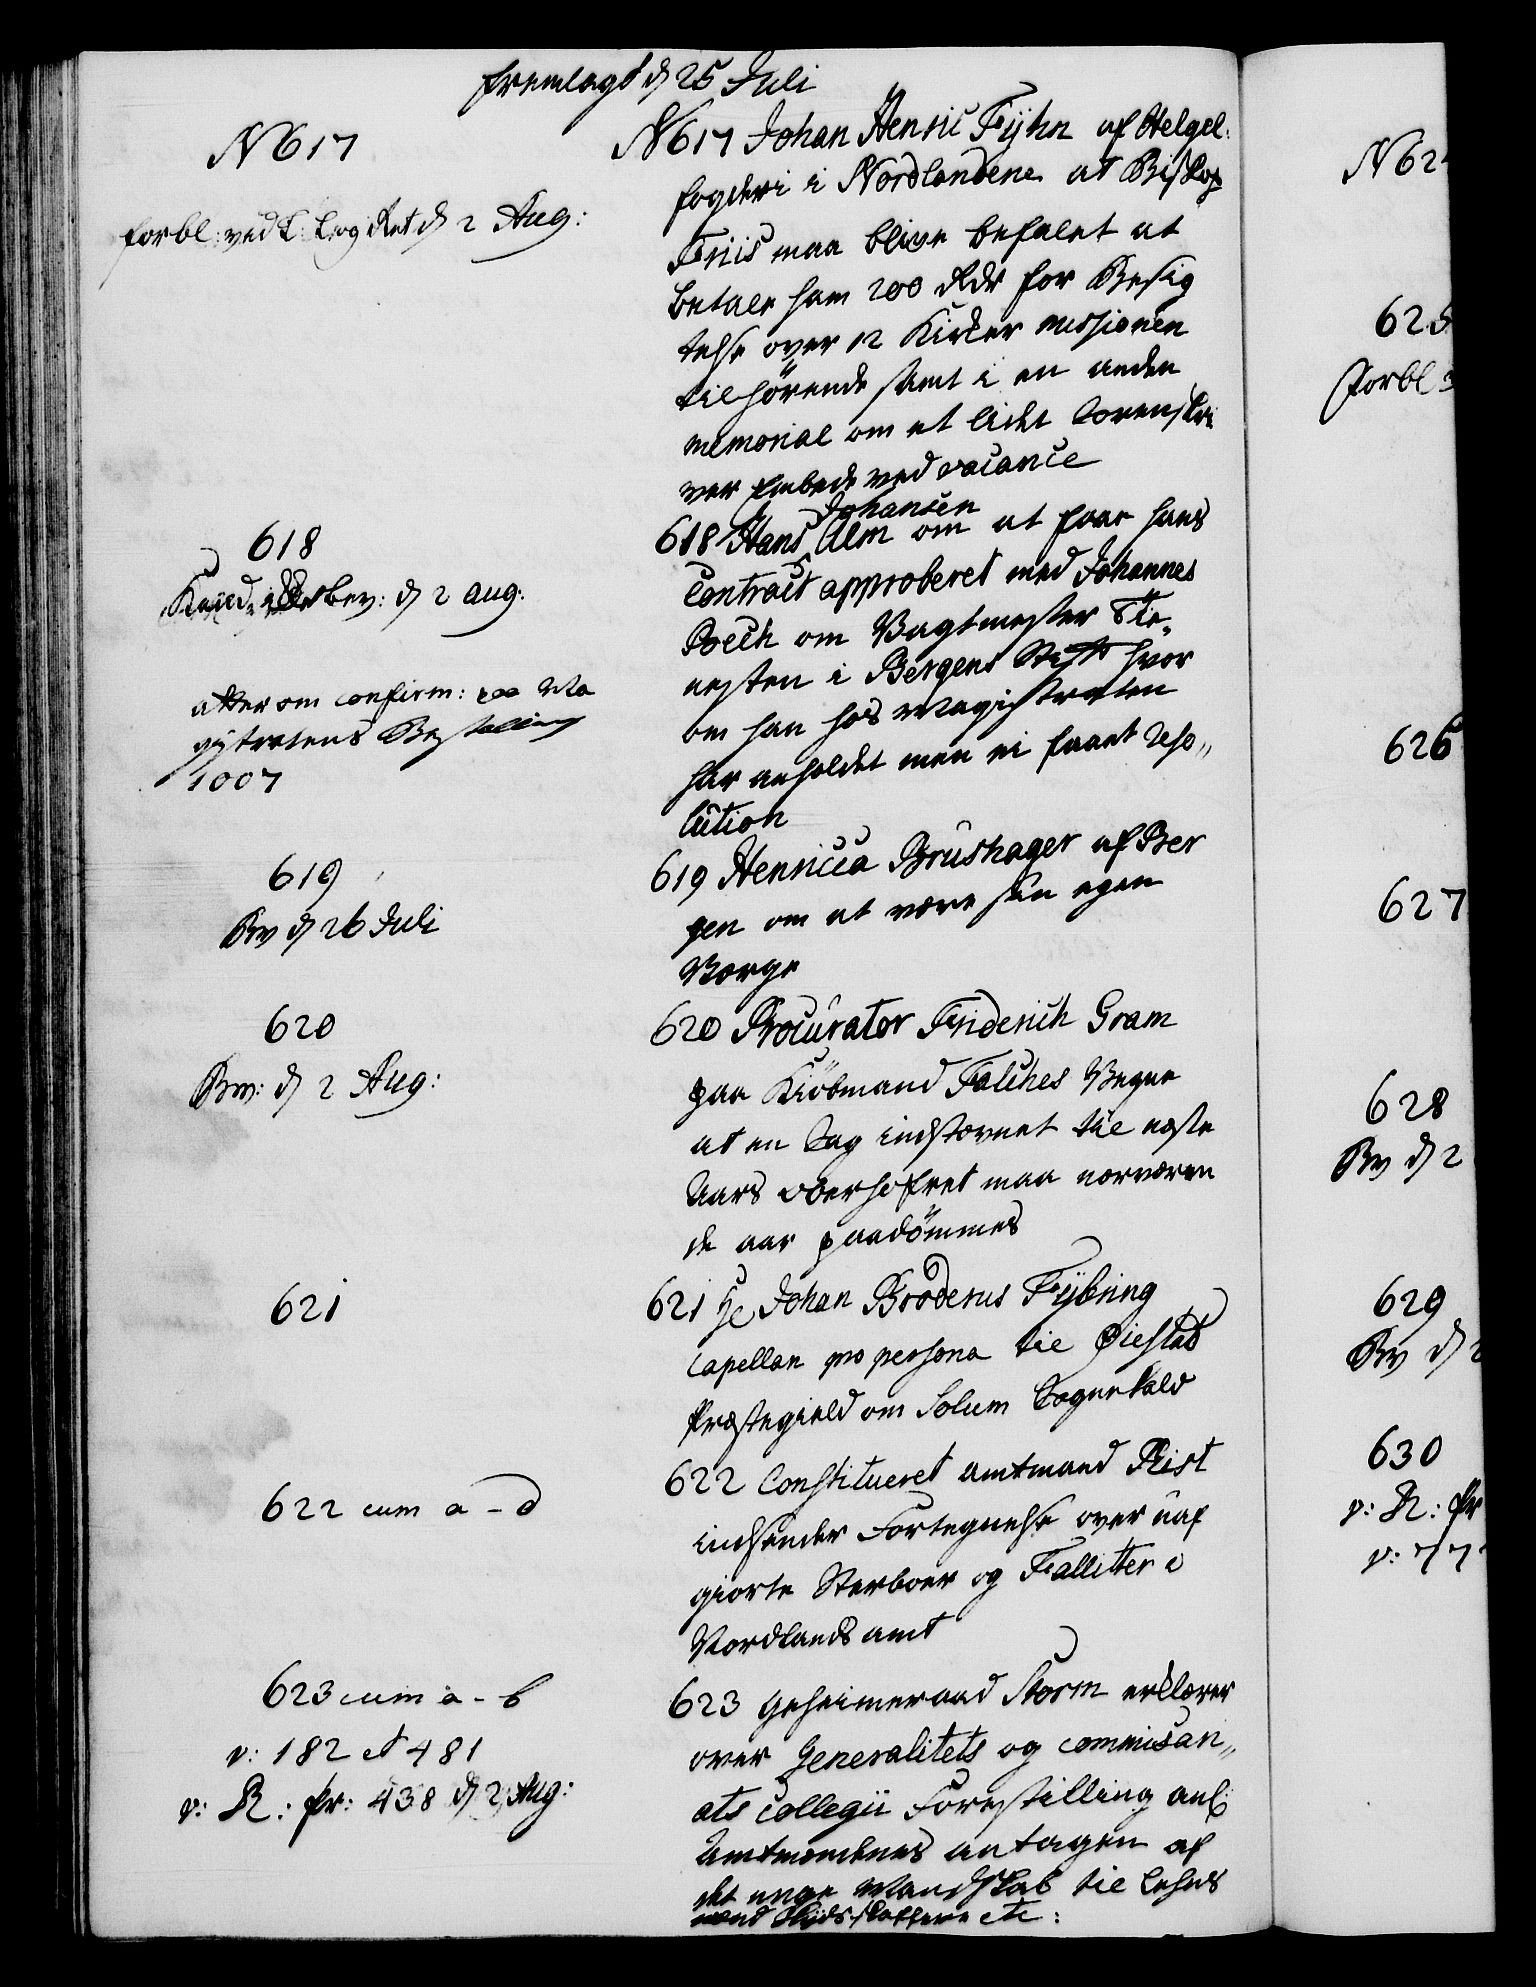 fremlagt d 25 Juli
N 617
forbl: ved L: Log Ret d 2 Aug:
N 617 Johan Henric Fyhn af Helgel.
fogderi i Nordlandene at Biskop
Friis maa blive befalet at
betale ham 200 Rdr for Besig
telse over 12 Kirker missionen
tilhörende samt i en anden
memorial om et lidet Sorenskri
ver Embede ved vacance
618
bev: d 2 aug:
atter om confirm: paa Ma
gistratens Bestalling
1007
618 Hans Johansen Alm om at faae hans
Contract approberet med Johannes
Poech om Vagtmester Tie„
nesten i Bergens Stift hvor
om han hos Magistraten
har anholdet men ei faaet Reso„
lution
619
Bev d 26 Juli
619 Henricca Brushager af Ber
gen om at være sin egen
Værge
620
Bev: d 2 Aug:
620 Procurator Friderich Gram
paa Kiöbmand Falches Vegne
at en Sag indstævnet til næste
Aars oberhofret maa nærværen
de aar paadömmes
621
621 Hr Johan Broderus Fybring
Capellan pro persona til Øiestad
Præstegield om Solum Sognekald
622 cum a - d
622 Constitueret amtmand Rist
indsender Fortegnelse over uaf
giorte Sterboer og Fallitter i
Nordlands amt
623 cum a - b
v: 182 et 481
v: R.: pr: 438 d 2 Aug:
623 Geheimeraad Storm erklærer
over Generalitets og commissari„
ats Collegii Forestilling anl:
Amtmændenes antagen af
det unge Mandskab til Lehns
mænd Skydsskaffere etc:
N 62
625
forbl
626
627
628
Bev d 2
629
Bev d 2
630
v: R.: pr
v: 77